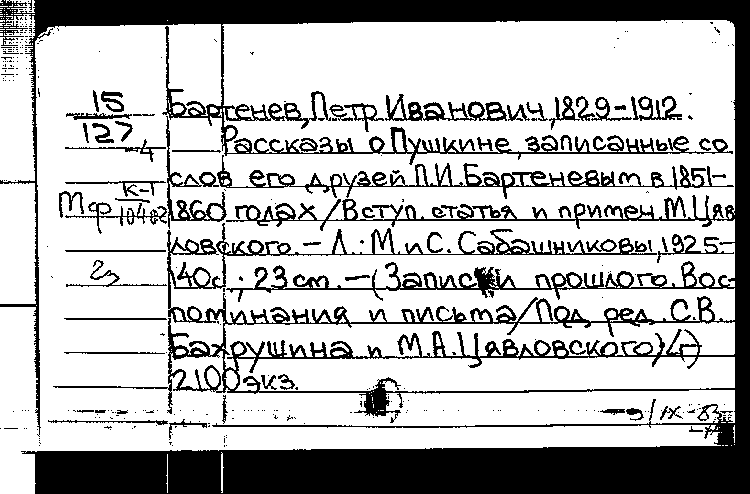 15
127
-4
Бартенев, Петр Иванович, 1829-1912.
Рассказы о Пушкине, записанные со
слов его друзей П.И.Бартеневым в 1851-
Мф К-1
10402
1860 годах/Вступ. статья и примеч. М.Цяв
ловского. – Л.: М. и С. Сабашниковы, 1925-
140с.; 23 см. – (Записки прошлого. Вос-
поминания и письма/Под ред. С.В.
Бахрушина и М.А.Цявловского)
2100 экз.
IX-83